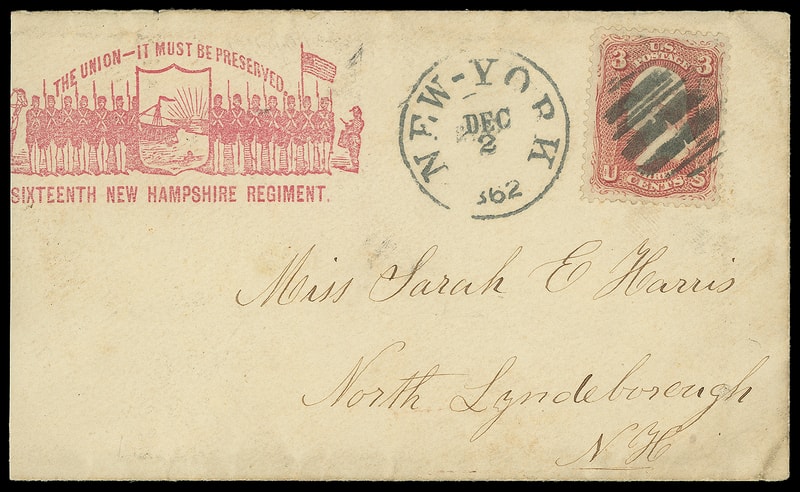 THE UNION—IT MUST BE PRESERVED.
SIXTEENTH NEW HAMPSHIRE REGIMENT.
NEW-YORK
DEC
2
1862
3 U.S. 3
POSTAGE
U CENTS S
Miss Sarah E Harris
North Lyndeborough
N H